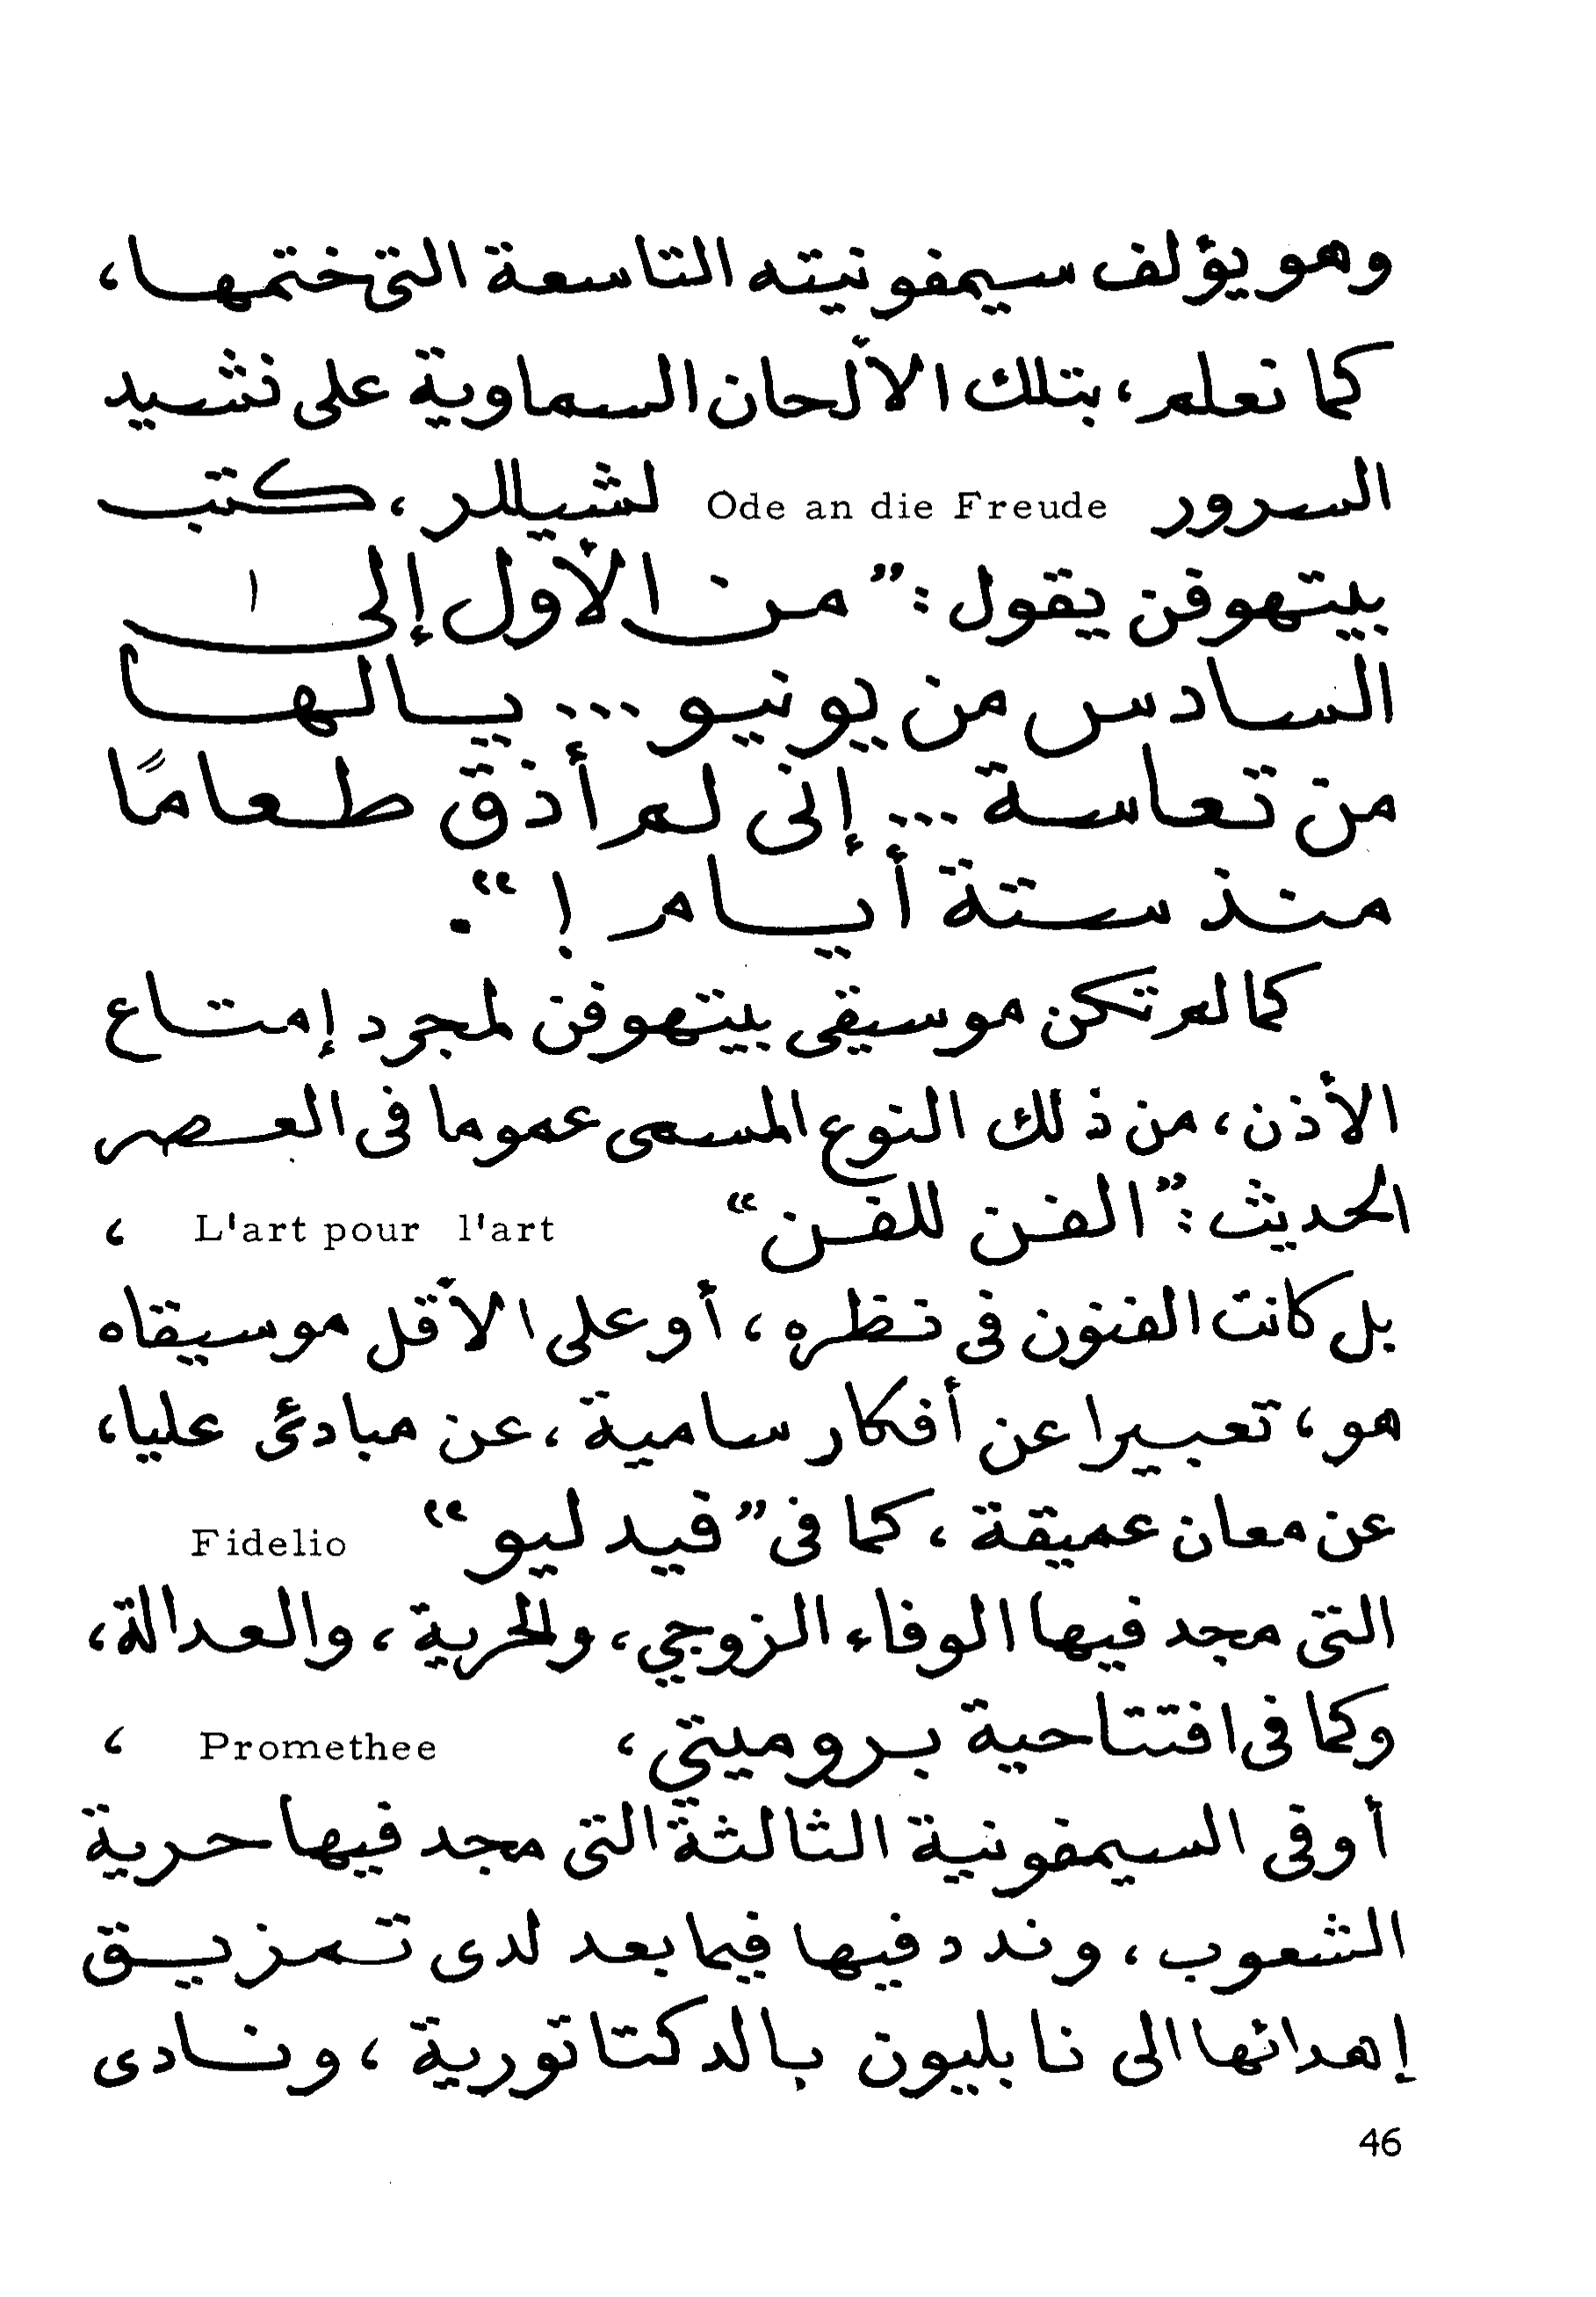 وهو يؤلف سيمفونيته التاسعة التى ختمها،
كما نعلم، بتلك الألحان السماوية على نشيد
السرور Ode an die Freude لشيللر، كتب
بيتهوفن يقول: ” من الأول إلى ١
السادس من يونيو ... يالها
من تعاسة ... إنى لم أذق طعامًا
منذ ستة أيام ! “.
كما لم تكن موسيقى بيتهوفن لمجرد إمتاع
الأذن، من ذلك النوع المسمى عموما فى العصر
الحديث: ”الفن للفن“ L'art pour l'art ،
بل كانت الفنون فى نظره، أو على الأقل موسيقاه
هو، تعبيرا عن أفكار سامية، عن مبادئ عليا،
عن معان عميقة، كما فى ”فيدليو“ Fidelio
التى مجد فيها الوفاء الزوجي، والحرية، والعدالة،
وكما فى افتتاحية بروميتي، Promethee ،
أو فى السيمفونية الثالثة التى مجد فيها حرية
الشعوب، وندد فيها فيما بعد لدى تمزيق
إهدائها الى نابليون بالدكتاتورية، ونادى
46